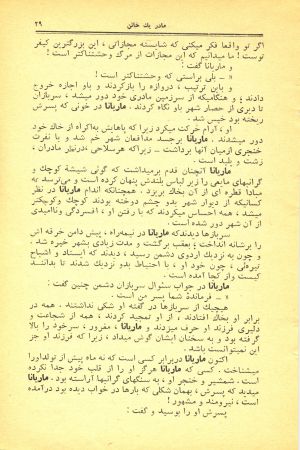 مادر یك خائن ۲۹
اگر تو واقعا فکر میکنی که شایسته مجازاتی ، این بزرگترین کیفر
تو است ! ما میدانیم که این مجازات از مرگ وحشتناکتر است !
و ماریانا گفت :
« – بلی براستی که وحشتناکتر است !
و باین ترتیب ، دروازه را بازکردند و باو اجازه خروج
دادند ؛ و هنگامیکه از سرزمین مادری خود دور میشد ، سربازان
تا دیری از حصار شهر باو نگاه کردند . ماریانا در خونی که پسرش
ریخته بود خیس شد .
او ، آرام حرکت میکرد زیرا که پاهایش به‌اکراه از خاك خود
دور میشدند . ماریانا برجسد مدافعان شهر خم شد و با نفرت
خنجری ازمیان آنها برداشت – زیراکه هرسلاحی ، درنظر مادران ،
زشت و پلید است .
ماریانا آنچنان قدم برمیداشت که گوئی شیشه کوچك و
گرانبهای مایعی را زیر لباس بلندش پنهان کرده است و می‌ترسد که
مبادا قطره ای از آن بخاك بریزد . همچنانکه اندام ماریانا در نظر
کسانیکه از دیوار شهر بدو چشم دوخته بودند کوچك وکوچکتر
میشد ، همه احساس میکردند که با رفتن او ، افسردگی وناامیدی
از آن شهر دور شده است .
سربازها دیدندکه ماریانا در نیمه‌راه ، پیش دامن خرقه اش
را برشانه انداخت ؛ بعقب برگشت و مدت زیادی بشهر خیره شد .
و چون به نزدیك اردوی دشمن رسید ، دیدند که ایستاد و اشباح
تیره‌ئی ، چون خود او ، با احتیاط بدو نزدیك شدند تا بدانند
کیست واز کجا آمده است .
ماریانا در جواب سئوال سربازان دشمن چنین گفت :
« – فرمانده‌ شما پسر من است .
هیچیك از سربازها در گفته او شکی نداشتند . همه در
برابر او بخاك افتادند ، از او تمجید کردند ، همه از شجاعت و
دلیری فرزند او حرف میزدند و ماریانا ، مغرور ، سرخود را بالا
گرفته بود و به سخنان ایشان گوش میداد ، زیرا که فرزند او جز
این نمیتوانست باشد .
اکنون ماریانا دربرابر کسی است که نه ماه پیش از تولداورا
میشناخت . کسی که ماریانا هرگز او را از قلب خود جدا نکرده
است . شمشیر و خنجر او ، به سنگهای گرانبها آراسته بود . ماریانا
میدید که پسرش ، بهمان شکلی که بارها در خواب دیده بود درآمده
است ، نیرومند و مشهور !
پسرش او را بوسید و گفت :